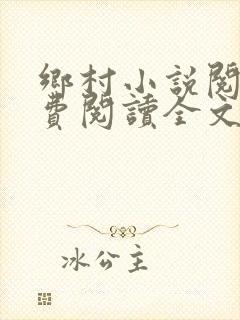 鄉村小說閱
費閱讀全文
冰公主